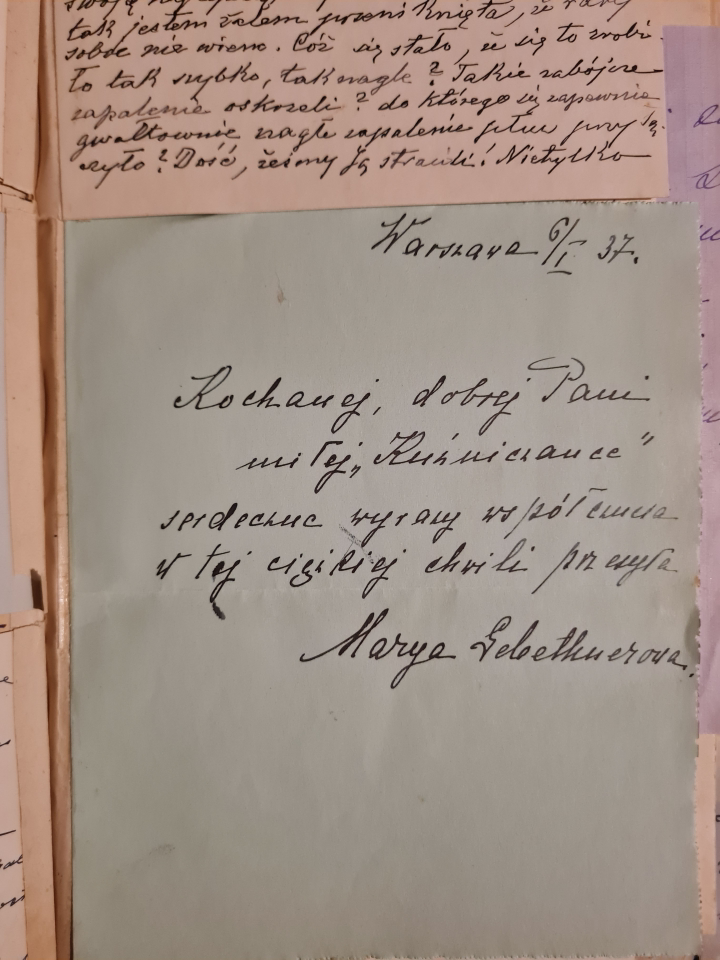 swoją
tak jestem żalem przeniknięta, że rady
sobie nie wiem. Cóż się stało, że się to zrobi-
ło tak szybko, tak nagle? Takie zabójcze
zapalenie oskrzeli? do którego się zapewnie
gwałtownie nagłe zapalenie płuc przy łą-
czyło? Dość, żeśmy Ją stracili! Nietylko
Warszawa 6/I 37.
Kochanej, dobrej Pani
miłej „Kuźniczance”
serdeczne wyrazy współczucia
w tej ciężkiej chwili przesyła
Marya Gebethnerowa.